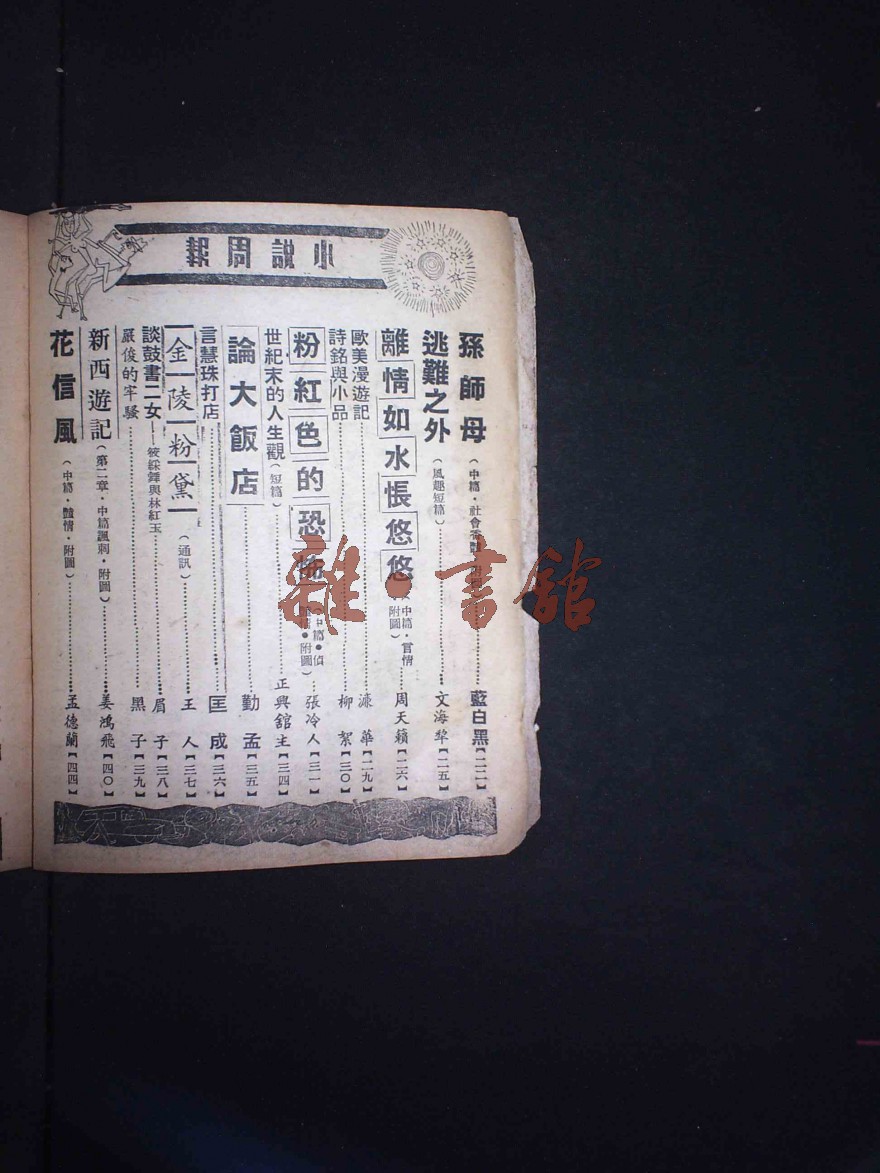 小說周報
孫師母(中篇・社會 附圖)藍白黑【二二】
逃難之外(風趣短篇)文海犂【二五】
離情如水悵悠悠(中篇・言情・附圖)周天籟【二六】
歐美漫遊記 濂華【二九】
詩銘與小品 柳絮【三〇】
粉紅色的恐怖(中篇・偵 ・附圖)張冷人【三一】
世紀末的人生觀(短篇)正興舘主【三四】
論大飯店 勤孟【三五】
言慧珠打店 匡成【三六】
金陵粉黛(通訊)王人【三七】
談鼓書二女——筱綵鏵與林紅玉 眉子【三八】
嚴俊的牢騷 黑子【三九】
新西遊記(第二章・中篇諷刺・附圖)姜鴻飛【四〇】
花信風(中篇・艷情・附圖)孟德蘭【四四】
雜・書舘